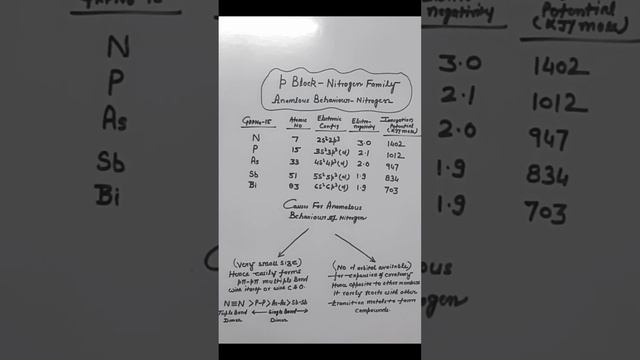 p Block-Nitrogen Family
Anomalous Behaviour-Nitrogen
Group No-15 Atomic No Electronic Config Electro-negativity Ionization Potential (KJ/mole)
N 7 2s²2p³ 3.0 1402
P 15 3s²3p³(d) 2.1 1012
As 33 4s²4p³(d) 2.0 947
Sb 51 5s²5p³(d) 1.9 834
Bi 83 6s²6p³(d) 1.9 703
Causes For Anomalous
Behaviour of Nitrogen
(Very small SIZE)
Hence easily forms
pπ-pπ multiple Bond
with itself or with C & O.
N≡N > P-P > As-As > Sb-Sb
Triple Bond Single Bond
Dimer Dimer
(No d orbital available)
for expansion of covalency
Hence opposite to other members
it rarely reacts with other
transition metals to form
compounds
negativity Potential
(KJ/mole)
N 3.0 1402
P 2.1 1012
As 2.0 947
Sb 1.9 834
Bi 1.9 703